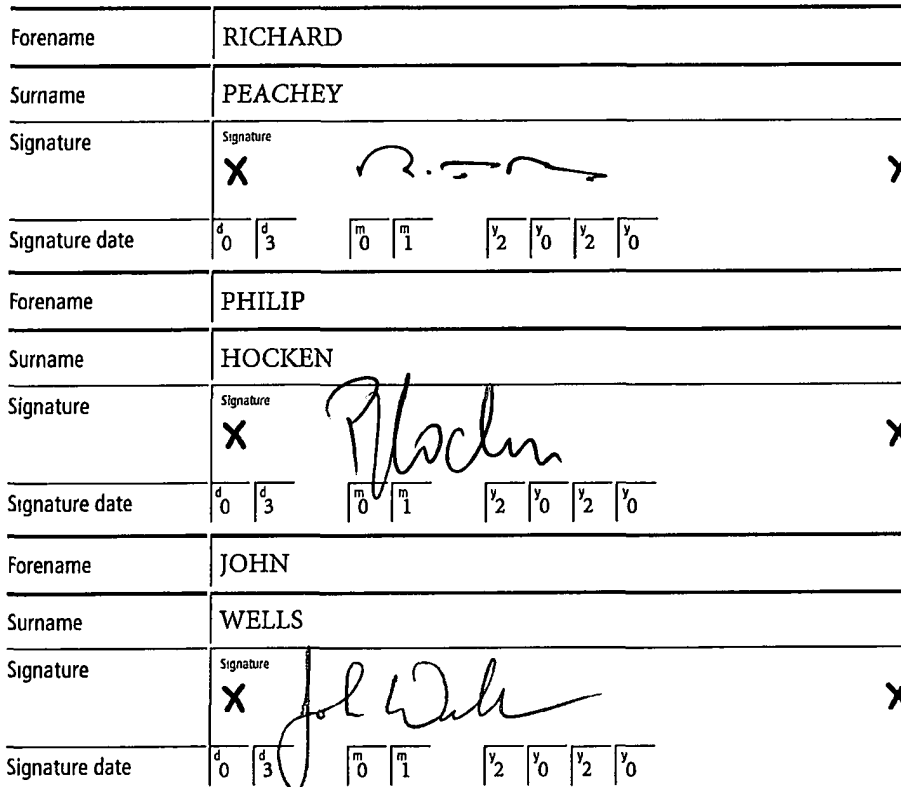 Forename RICHARD
Surname PEACHEY
Signature Signature X X
Signature date d0 d3 m0 m1 y2 y0 y2 y0
Forename PHILIP
Surname HOCKEN
Signature Signature X PHocken X
Signature date d0 d3 m0 m1 y2 y0 y2 y0
Forename JOHN
Surname WELLS
Signature Signature X John Wells X
Signature date d0 d3 m0 m1 y2 y0 y2 y0